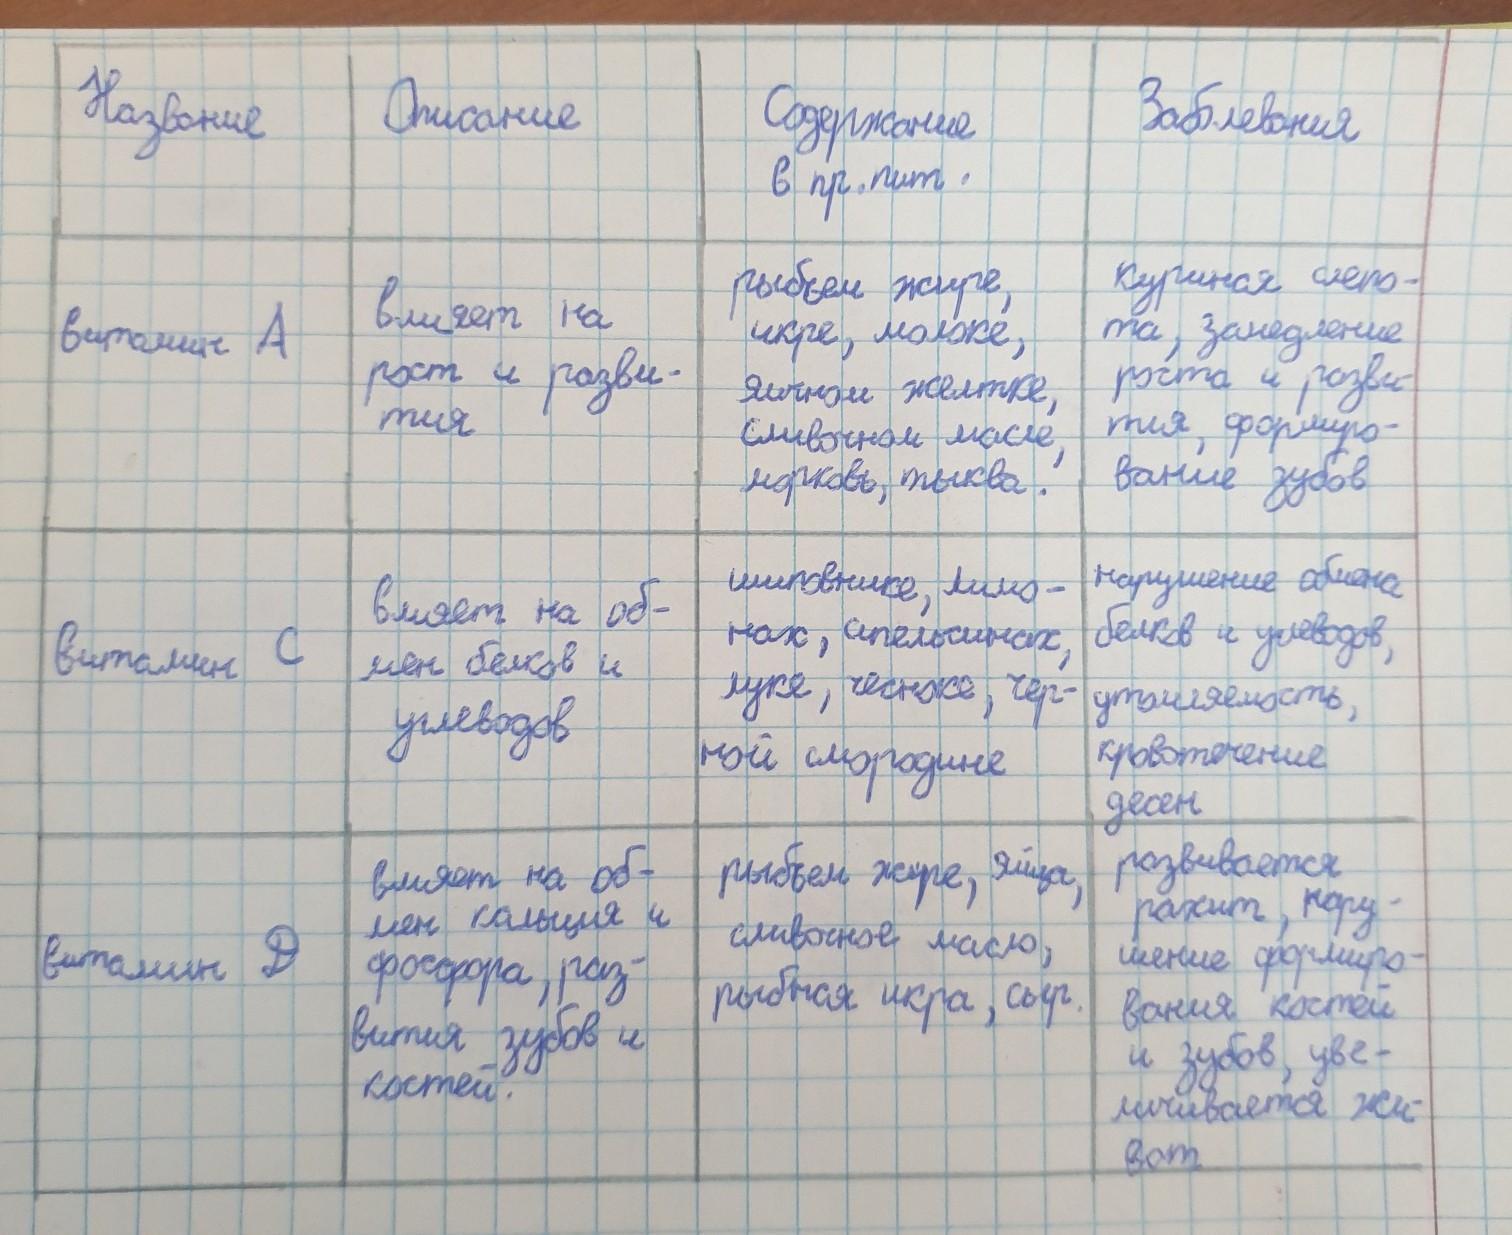 Название
Описание
Содержание
в пр. пит.
Заболевания
витамин А
влияет на
рост и разви-
тия
рыбьем жире,
икре, молоке,
яичном желтке,
сливочном масле,
морковь, тыква.
куриная слепо-
та, замедление
роста и разви-
тия, формиро-
вание зубов
витамин С
влияет на об-
мен белков и
углеводов
шиповнике, лимо-
нах, апельсинах,
луке, чесноке, чер-
ной смородине
нарушение обмена
белков и углеводов,
утомляемость,
кровотечение
десен
витамин D
влияет на об-
мен кальция и
фосфора, раз-
вития зубов и
костей.
рыбьем жире, яйца,
сливочное масло,
рыбная икра, сыр.
развивается
рахит, нару-
шение формиро-
вания костей
и зубов, уве-
личивается жи-
вот